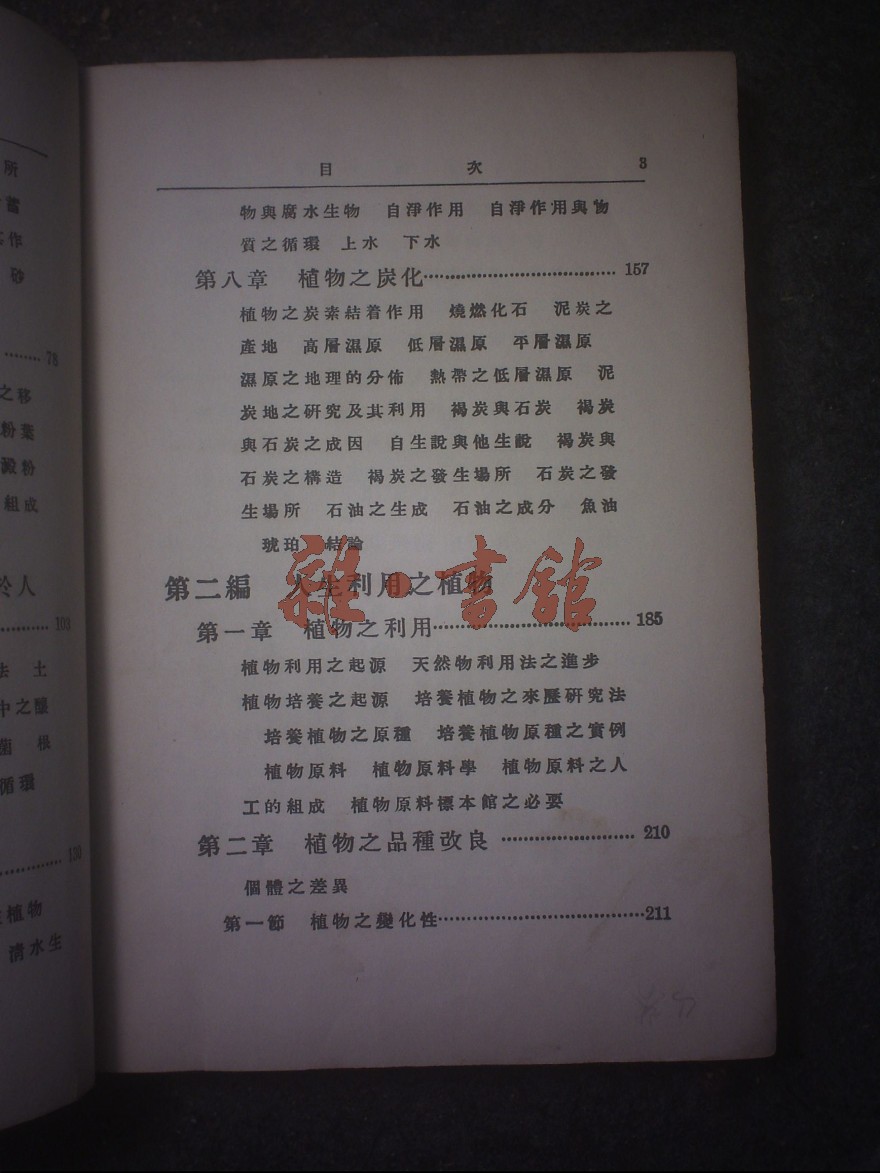 所
蓄
作
砂
78
之移
粉葉
澱粉
組成
於人
103
法 土
中之釀
菌 根
循環
130
植物
清水生
目 次 3
物與腐水生物 自淨作用 自淨作用與物
質之循環 上水 下水
第八章 植物之炭化 157
植物之炭素結着作用 燒燃化石 泥炭之
產地 高層濕原 低層濕原 平層濕原
濕原之地理的分佈 熱帶之低層濕原 泥
炭地之研究及其利用 褐炭與石炭 褐炭
與石炭之成因 自生說與他生說 褐炭與
石炭之構造 褐炭之發生場所 石炭之發
生場所 石油之生成 石油之成分 魚油
琥珀 結論
雜·書館
第二編 人生利用之植物
第一章 植物之利用 185
植物利用之起源 天然物利用法之進步
植物培養之起源 培養植物之來歷研究法
培養植物之原種 培養植物原種之實例
植物原料 植物原料學 植物原料之人
工的組成 植物原料標本館之必要
第二章 植物之品種改良 210
個體之差異
第一節 植物之變化性 211